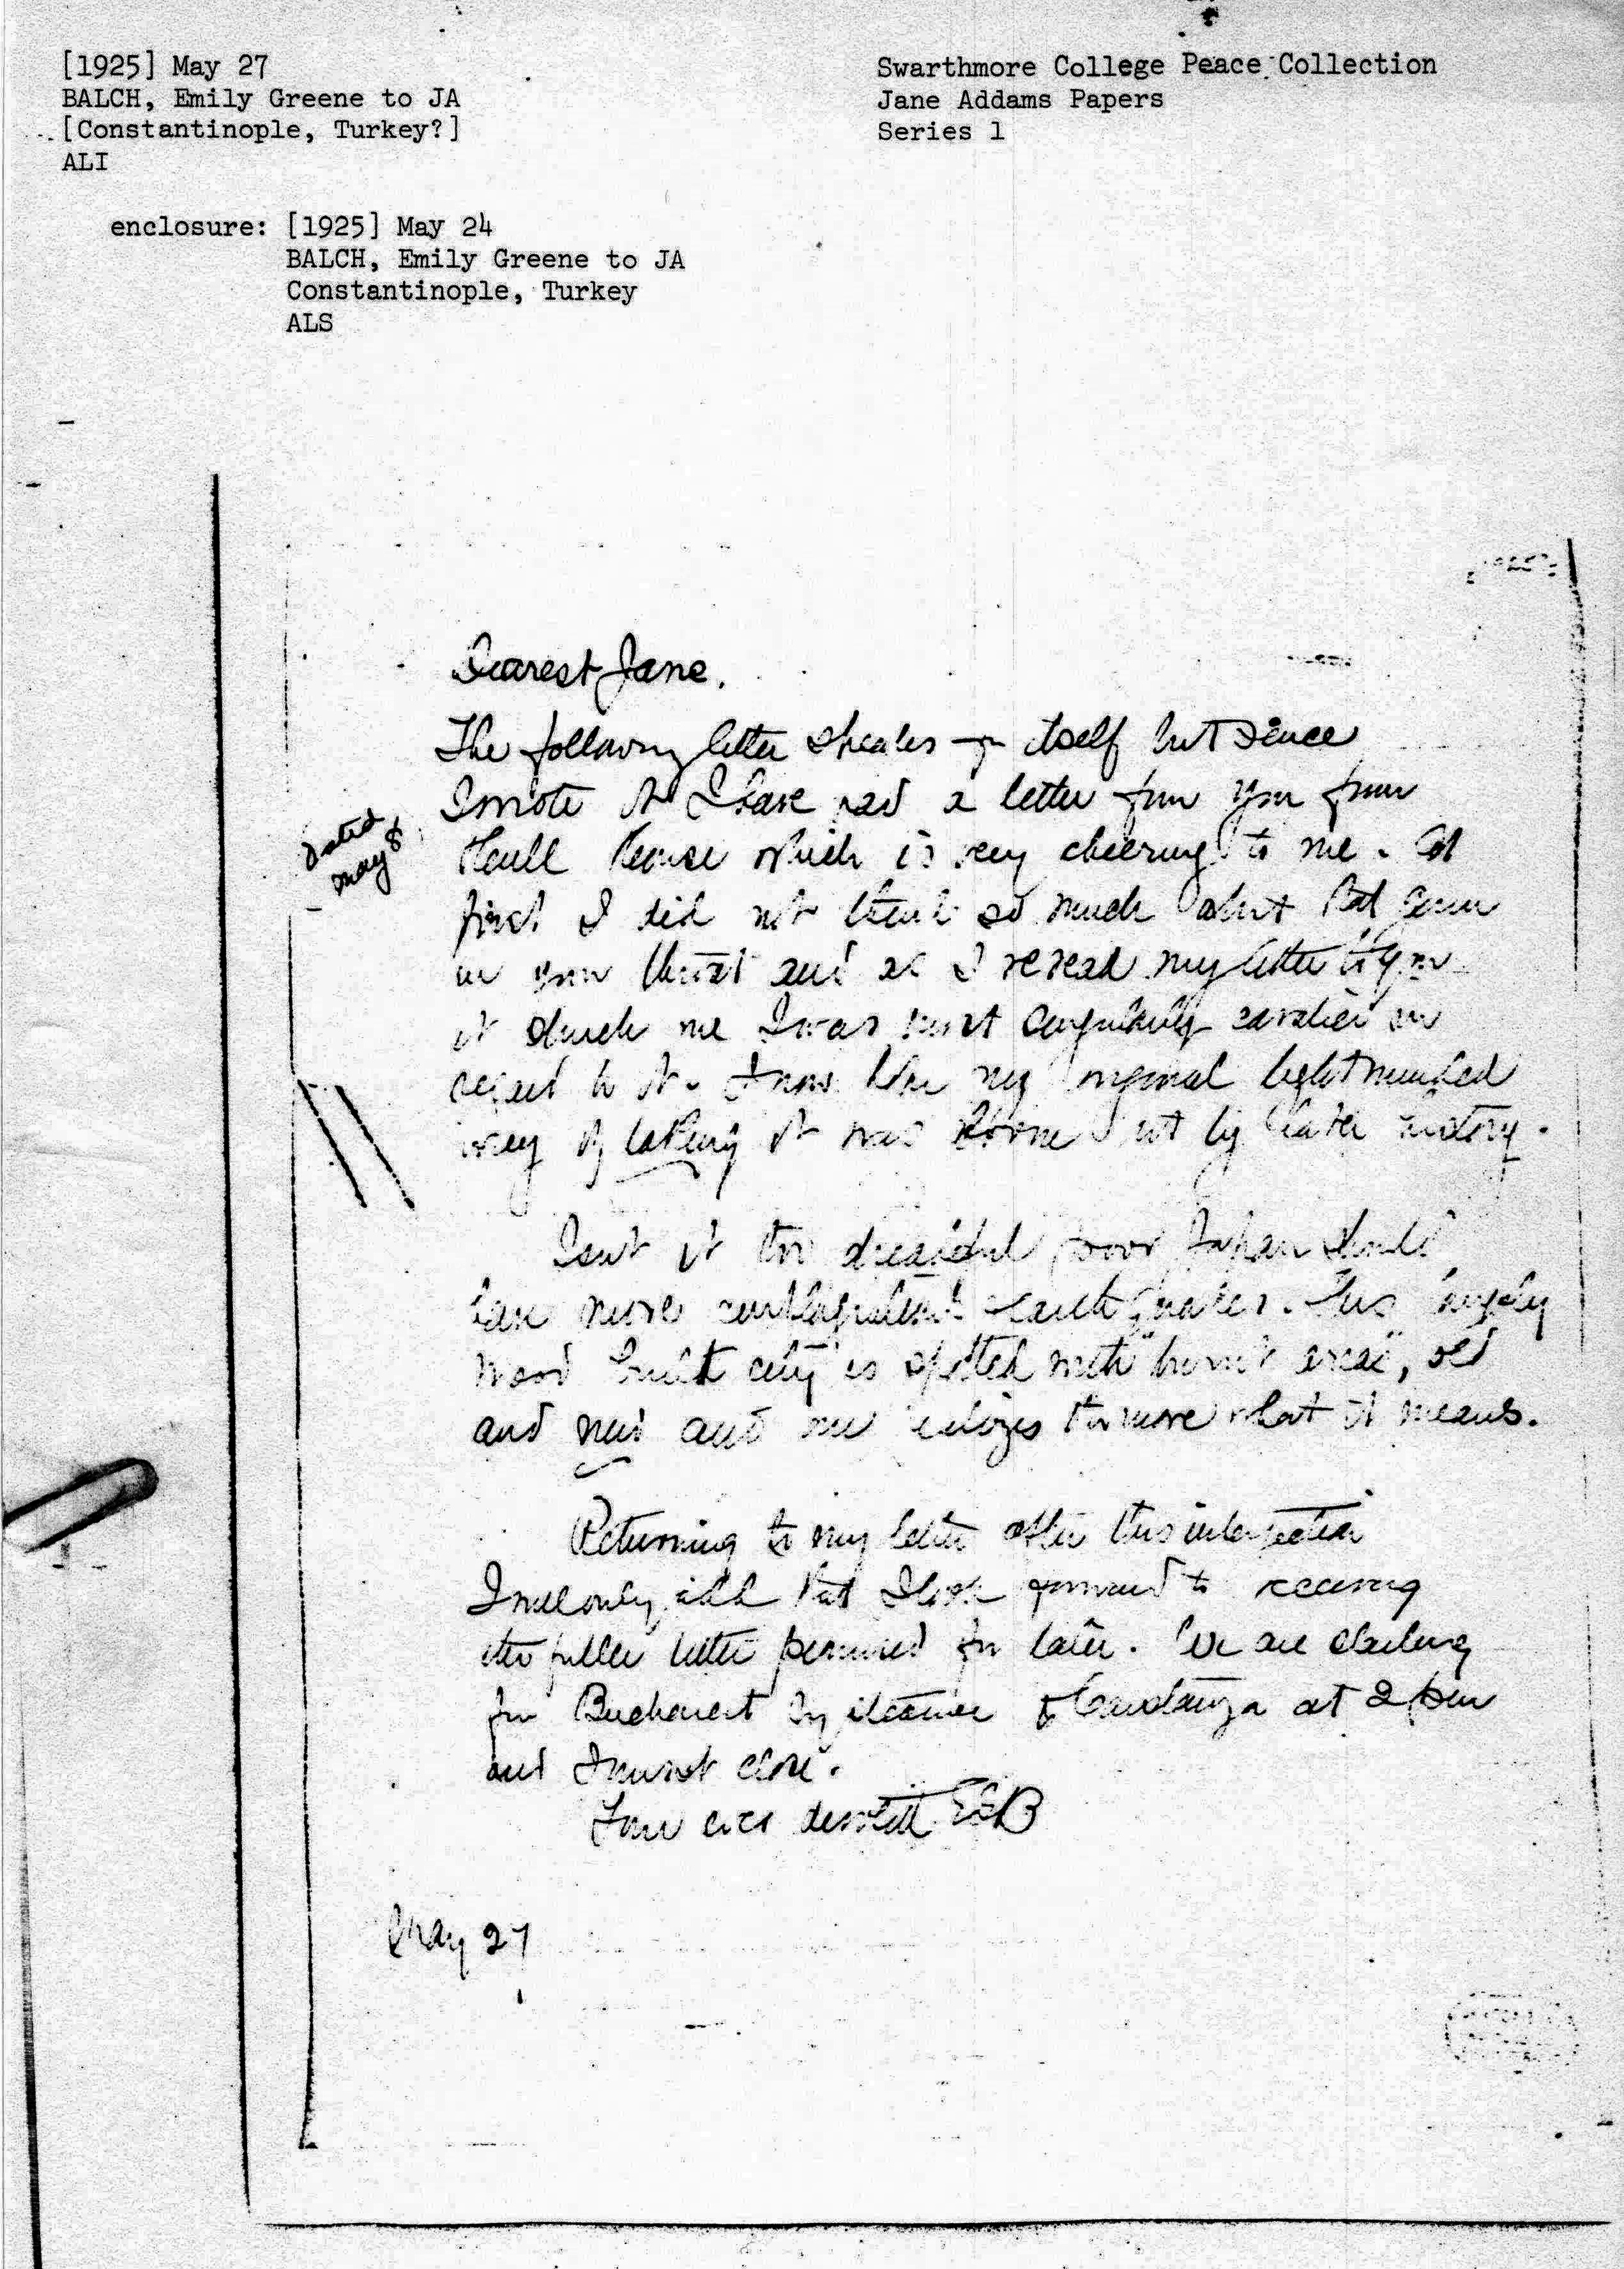 [1925] May 27
BALCH, Emily Greene to JA
[Constantinople, Turkey?]
ALI
Swarthmore College Peace Collection
Jane Addams Papers
Series 1
enclosure: [1925] May 24
BALCH, Emily Greene to JA
Constantinople, Turkey
ALS
Dearest Jane.
The following letter speaks for itself but since
I wrote it I have had a letter from you from
Dated
May 8
Hull House which is very cheering to me. At
first I did not think so much about that germ
in your throat and as I reread my letter to you
it struck me I was most cavalier in
regard to it. I now like my original light minded
way of taking it was borne out by later history.
Isn't it too dreadful poor Japan should
have more earth quakes. This largely
wood built city is spotted with "burnt areas", old
and new and one the more what it means.
Returning to my letter after this interjection
I will only add that I look forward to receiving
the fuller letter promised for later. We are starting
for Bucharest by steamer to Constanza at 2 pm
and I must close.
Your ever devoted EGB
May 27